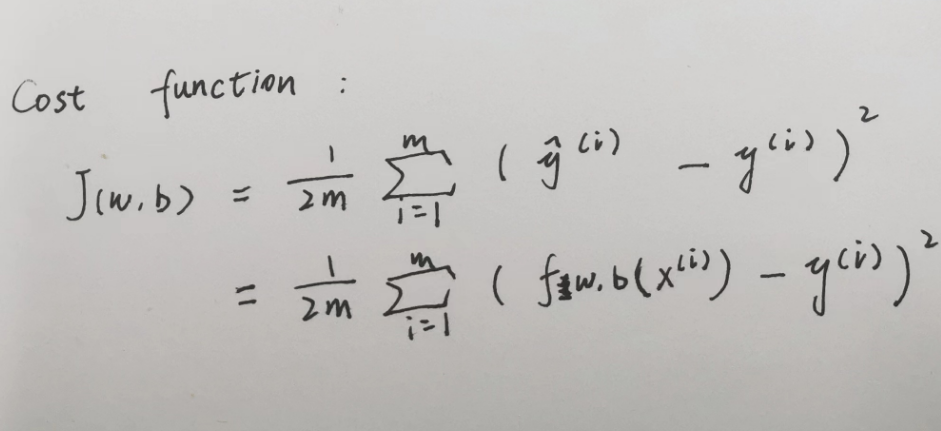 Cost function :
J(w.b) = \frac{1}{2m} \sum_{i=1}^{m} ( \hat{y}^{(i)} - y^{(i)} )^2
= \frac{1}{2m} \sum_{i=1}^{m} ( f_{w.b}(x^{(i)}) - y^{(i)} )^2